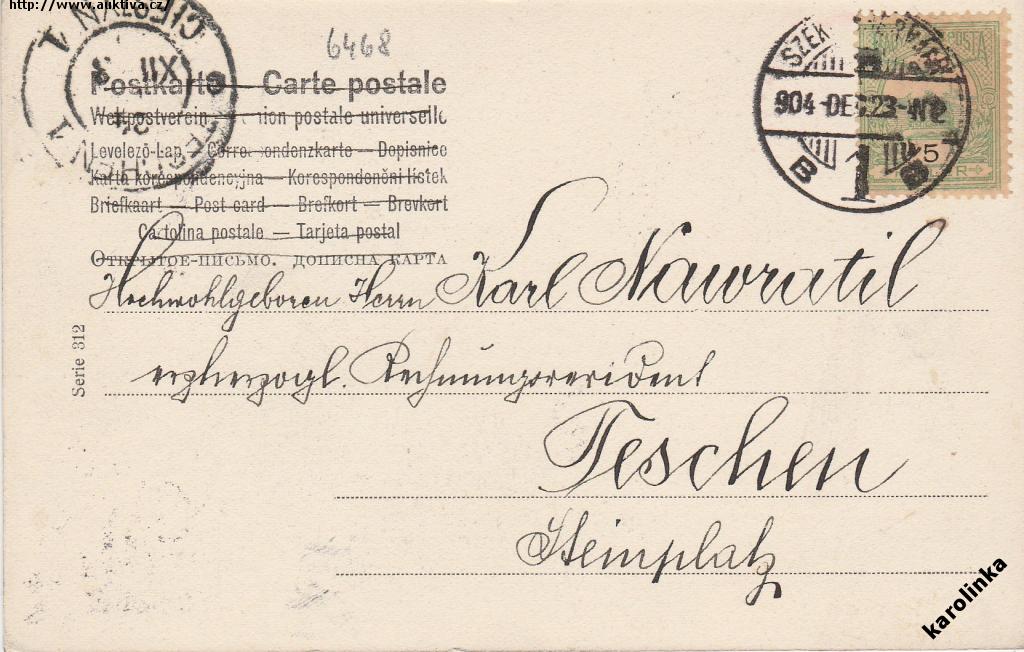 http://www.auktiva.cz/
6468
Postkarte — Carte postale
Weltpostverein — ion postale universelle
Levelező-Lap — Correspondenzkarte — Dopisnice
Karta korespondencyjna — Korespondenční lístek
Briefkaart — Post card — Brefkort — Brevkort
Cartolina postale — Tarjeta postal
Открытое-письмо. дописна карта
CIESZYN 1
TESCHEN 1
XII
904 DEC 23
B 1 B
5
Hochwohlgeboren Herrn Karl Nawratil
erzherzogl. Rechnungsrevident
Teschen
Steinplatz
Serie 312
karolinka